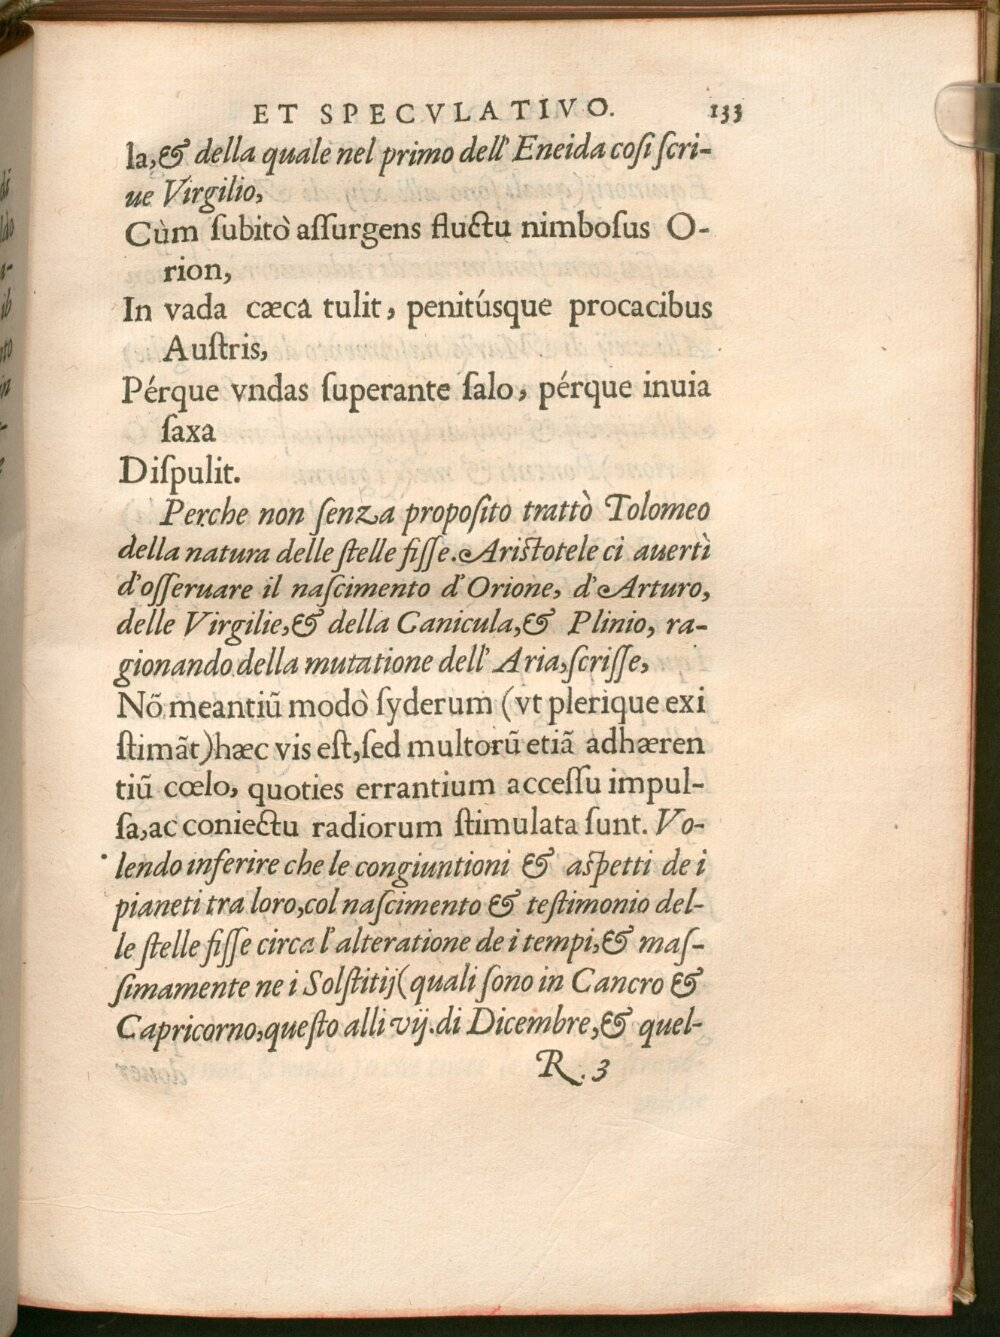 ET SPECVLATIVO. 133
la,& della quale nel primo dell' Eneida cosi scri-
ue Virgilio,
Cùm subitò assurgens fluctu nimbosus O-
rion,
In vada cæca tulit, penitúsque procacibus
Austris,
Pérque vndas superante salo, pérque inuia
saxa
Dispulit.
Perche non senza proposito trattò Tolomeo
della natura delle stelle fisse. Aristotele ci auertì
d'osseruare il nascimento d'Orione, d'Arturo,
delle Virgilie,& della Canicula,& Plinio, ra-
gionando della mutatione dell' Aria,scrisse,
Nõ meantiũ modò syderum (vt plerique exi
stimãt)hæc vis est,sed multorũ etiã adhæren
tiũ cœlo, quoties errantium accessu impul-
sa,ac coniectu radiorum stimulata sunt. Vo-
lendo inferire che le congiuntioni & aspetti de i
pianeti tra loro,col nascimento & testimonio del-
le stelle fisse circa l'alteratione de i tempi,& mas-
simamente ne i Solstitij(quali sono in Cancro &
Capricorno,questo alli vij.di Dicembre,& quel-
R.3